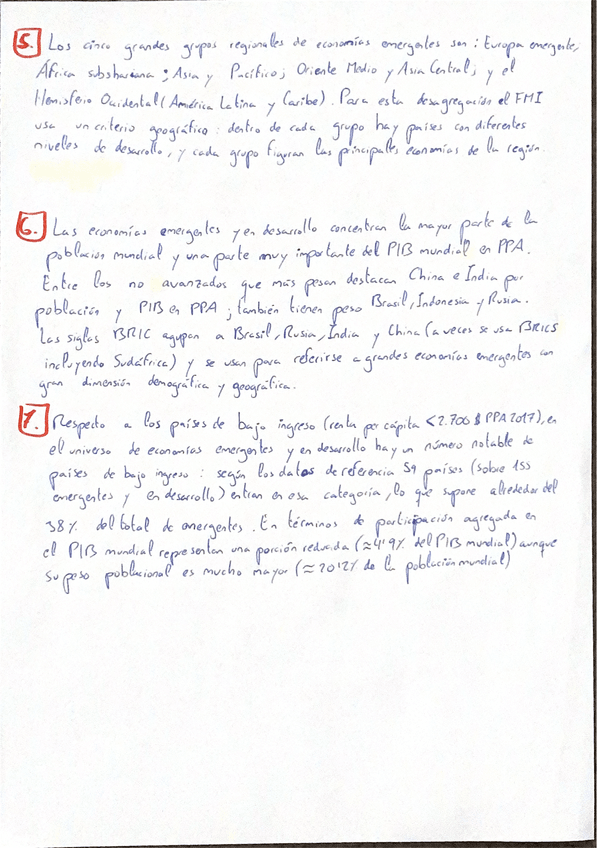 5. Los cinco grandes grupos regionales de economías emergentes son: Europa emergente,
África subshariana; Asia y Pacífico; Oriente Medio y Asia Central; y el
Hemisferio Occidental (América Latina y Caribe). Para esta desagregación el FMI
usa un criterio geográfico: dentro de cada grupo hay países con diferentes
niveles de desarrollo, y cada grupo figuran las principales economías de la región.
6. Las economías emergentes y en desarrollo concentran la mayor parte de la
población mundial y una parte muy importante del PIB mundial en PPA.
Entre los no avanzados que más pesan destacan China e India por
población y PIB en PPA; también tienen peso Brasil, Indonesia y Rusia.
Las siglas BRIC agupan a Brasil, Rusia, India y China (a veces se usa BRICS
incluyendo Sudáfrica) y se usan para referirse a grandes economías emergentes con
gran dimensión demográfica y geográfica.
7. Respecto a los países de bajo ingreso (renta per cápita <2.706$ PPA 2017), en
el universo de economías emergentes y en desarrollo hay un número notable de
países de bajo ingreso: según los datos de referencia 59 países (sobre 155
emergentes y en desarrollo) entran en esa categoría, lo que supone alrededor del
38% del total de emergentes. En términos de participación agregada en
el PIB mundial representan una porción reducida (≈4'9% del PIB mundial) aunque
su peso poblacional es mucho mayor (≈20'2% de la población mundial)